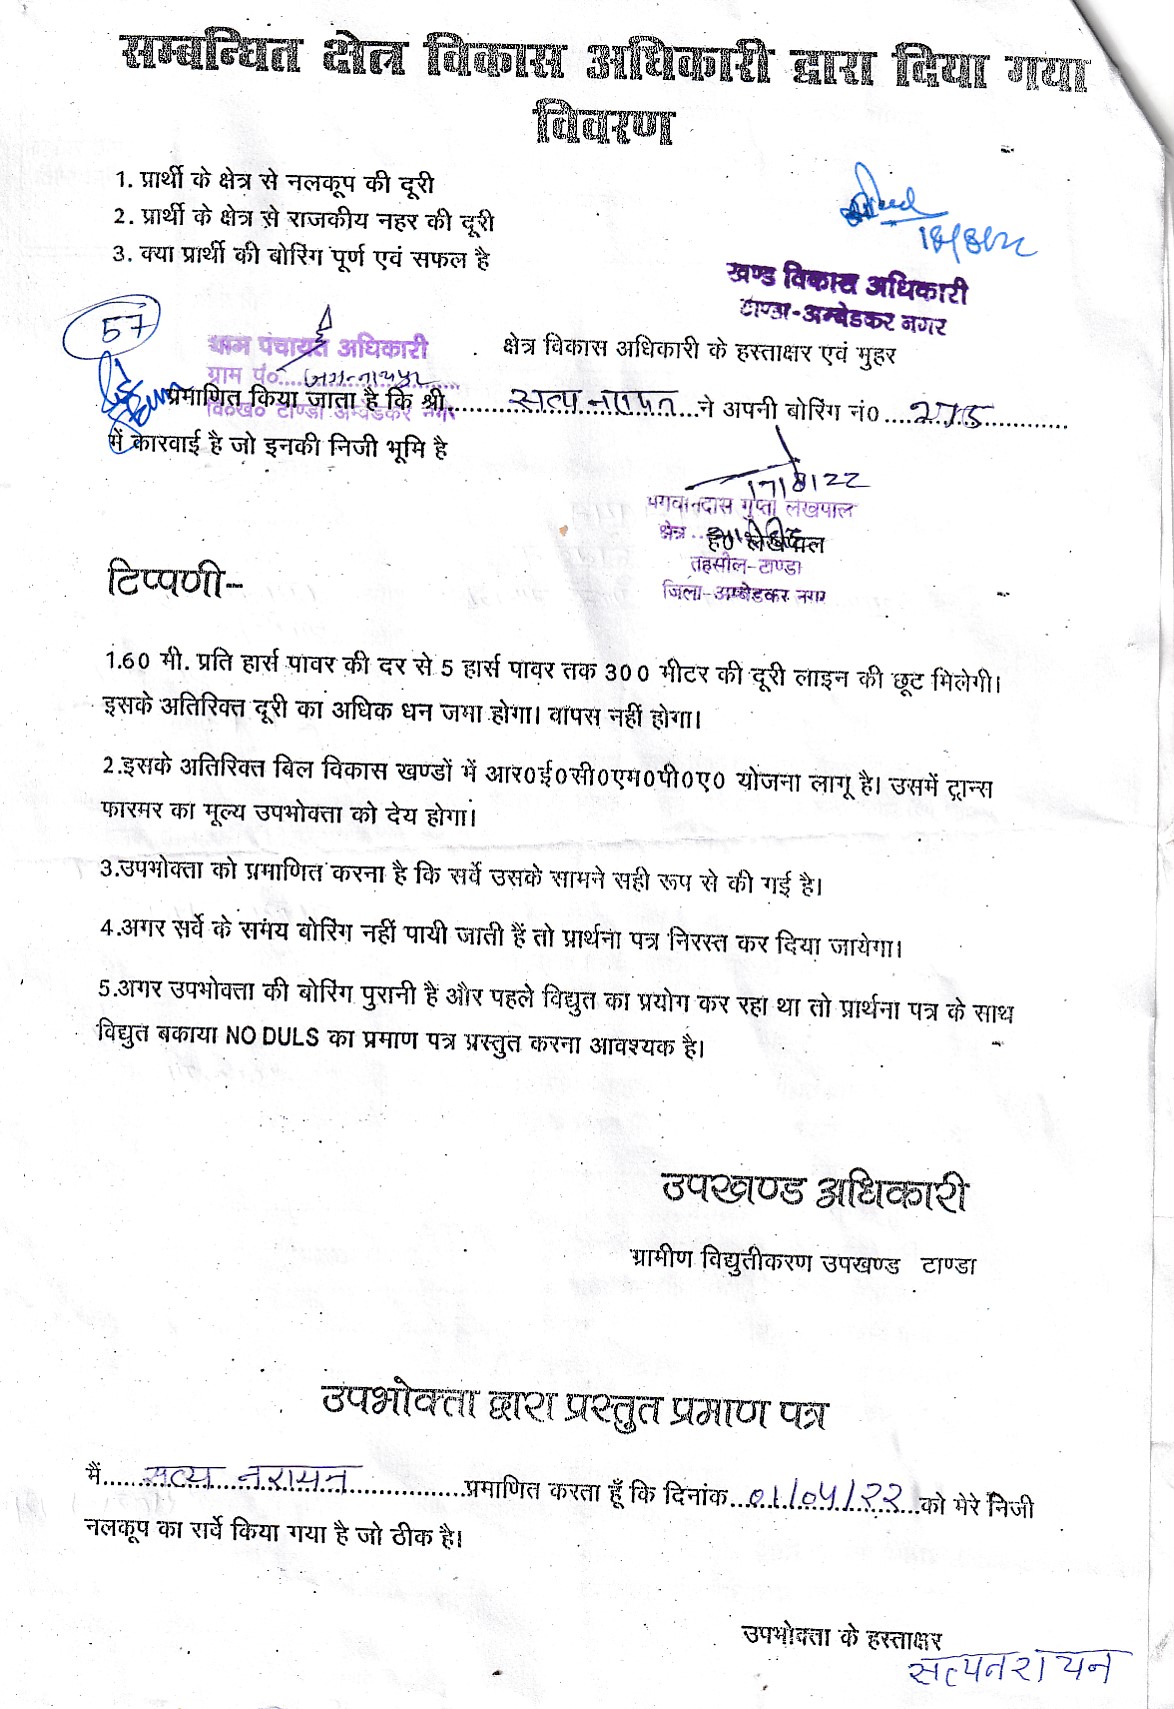 सम्बन्धित क्षेत्र विकास अधिकारी द्वारा दिया गया
विवरण
1. प्रार्थी के क्षेत्र से नलकूप की दूरी
2. प्रार्थी के क्षेत्र से राजकीय नहर की दूरी
3. क्या प्रार्थी की बोरिंग पूर्ण एवं सफल है
खण्ड विकास अधिकारी
टाण्डा-अम्बेडकर नगर
57
ग्राम पंचायत अधिकारी
ग्राम पं०....................
वि०ख० टाण्डा अम्बेडकर नगर
क्षेत्र विकास अधिकारी के हस्ताक्षर एवं मुहर
प्रमाणित किया जाता है कि श्री..........सत्य नारायन..........ने अपनी बोरिंग नं0 ....................
में कारवाई है जो इनकी निजी भूमि है
17/8/22
भगवानदास गुप्ता लेखपाल
क्षेत्र ..........
ह0 लेखपाल
तहसील-टाण्डा
जिला-अम्बेडकर नगर
टिप्पणी-
1.60 मी. प्रति हार्स पावर की दर से 5 हार्स पावर तक 300 मीटर की दूरी लाइन की छूट मिलेगी।
इसके अतिरिक्त दूरी का अधिक धन जमा होगा। वापस नहीं होगा।
2.इसके अतिरिक्त बिल विकास खण्डों में आर0ई0सी0एम0पी0ए0 योजना लागू है। उसमें ट्रान्स
फारमर का मूल्य उपभोक्ता को देय होगा।
3.उपभोक्ता को प्रमाणित करना है कि सर्वे उसके सामने सही रूप से की गई है।
4.अगर सर्वे के समंय बोरिंग नहीं पायी जाती हैं तो प्रार्थना पत्र निरस्त कर दिया जायेगा।
5.अगर उपभोक्ता की बोरिंग पुरानी है और पहले विद्युत का प्रयोग कर रहा था तो प्रार्थना पत्र के साथ
विद्युत बकाया NO DULS का प्रमाण पत्र प्रस्तुत करना आवश्यक है।
उपखण्ड अधिकारी
ग्रामीण विद्युतीकरण उपखण्ड टाण्डा
उपभोक्ता द्वारा प्रस्तुत प्रमाण पत्र
मैं......सत्य नरायन..........प्रमाणित करता हूँ कि दिनांक..01/04/22..को मेरे निजी
नलकूप का सर्वे किया गया है जो ठीक है।
उपभोक्ता के हस्ताक्षर
सत्यनरायन